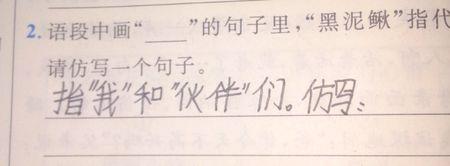 2.语段中画“____”的句子里,“黑泥鳅”指代
请仿写一个句子。
指"我"和"伙伴"们。仿写: